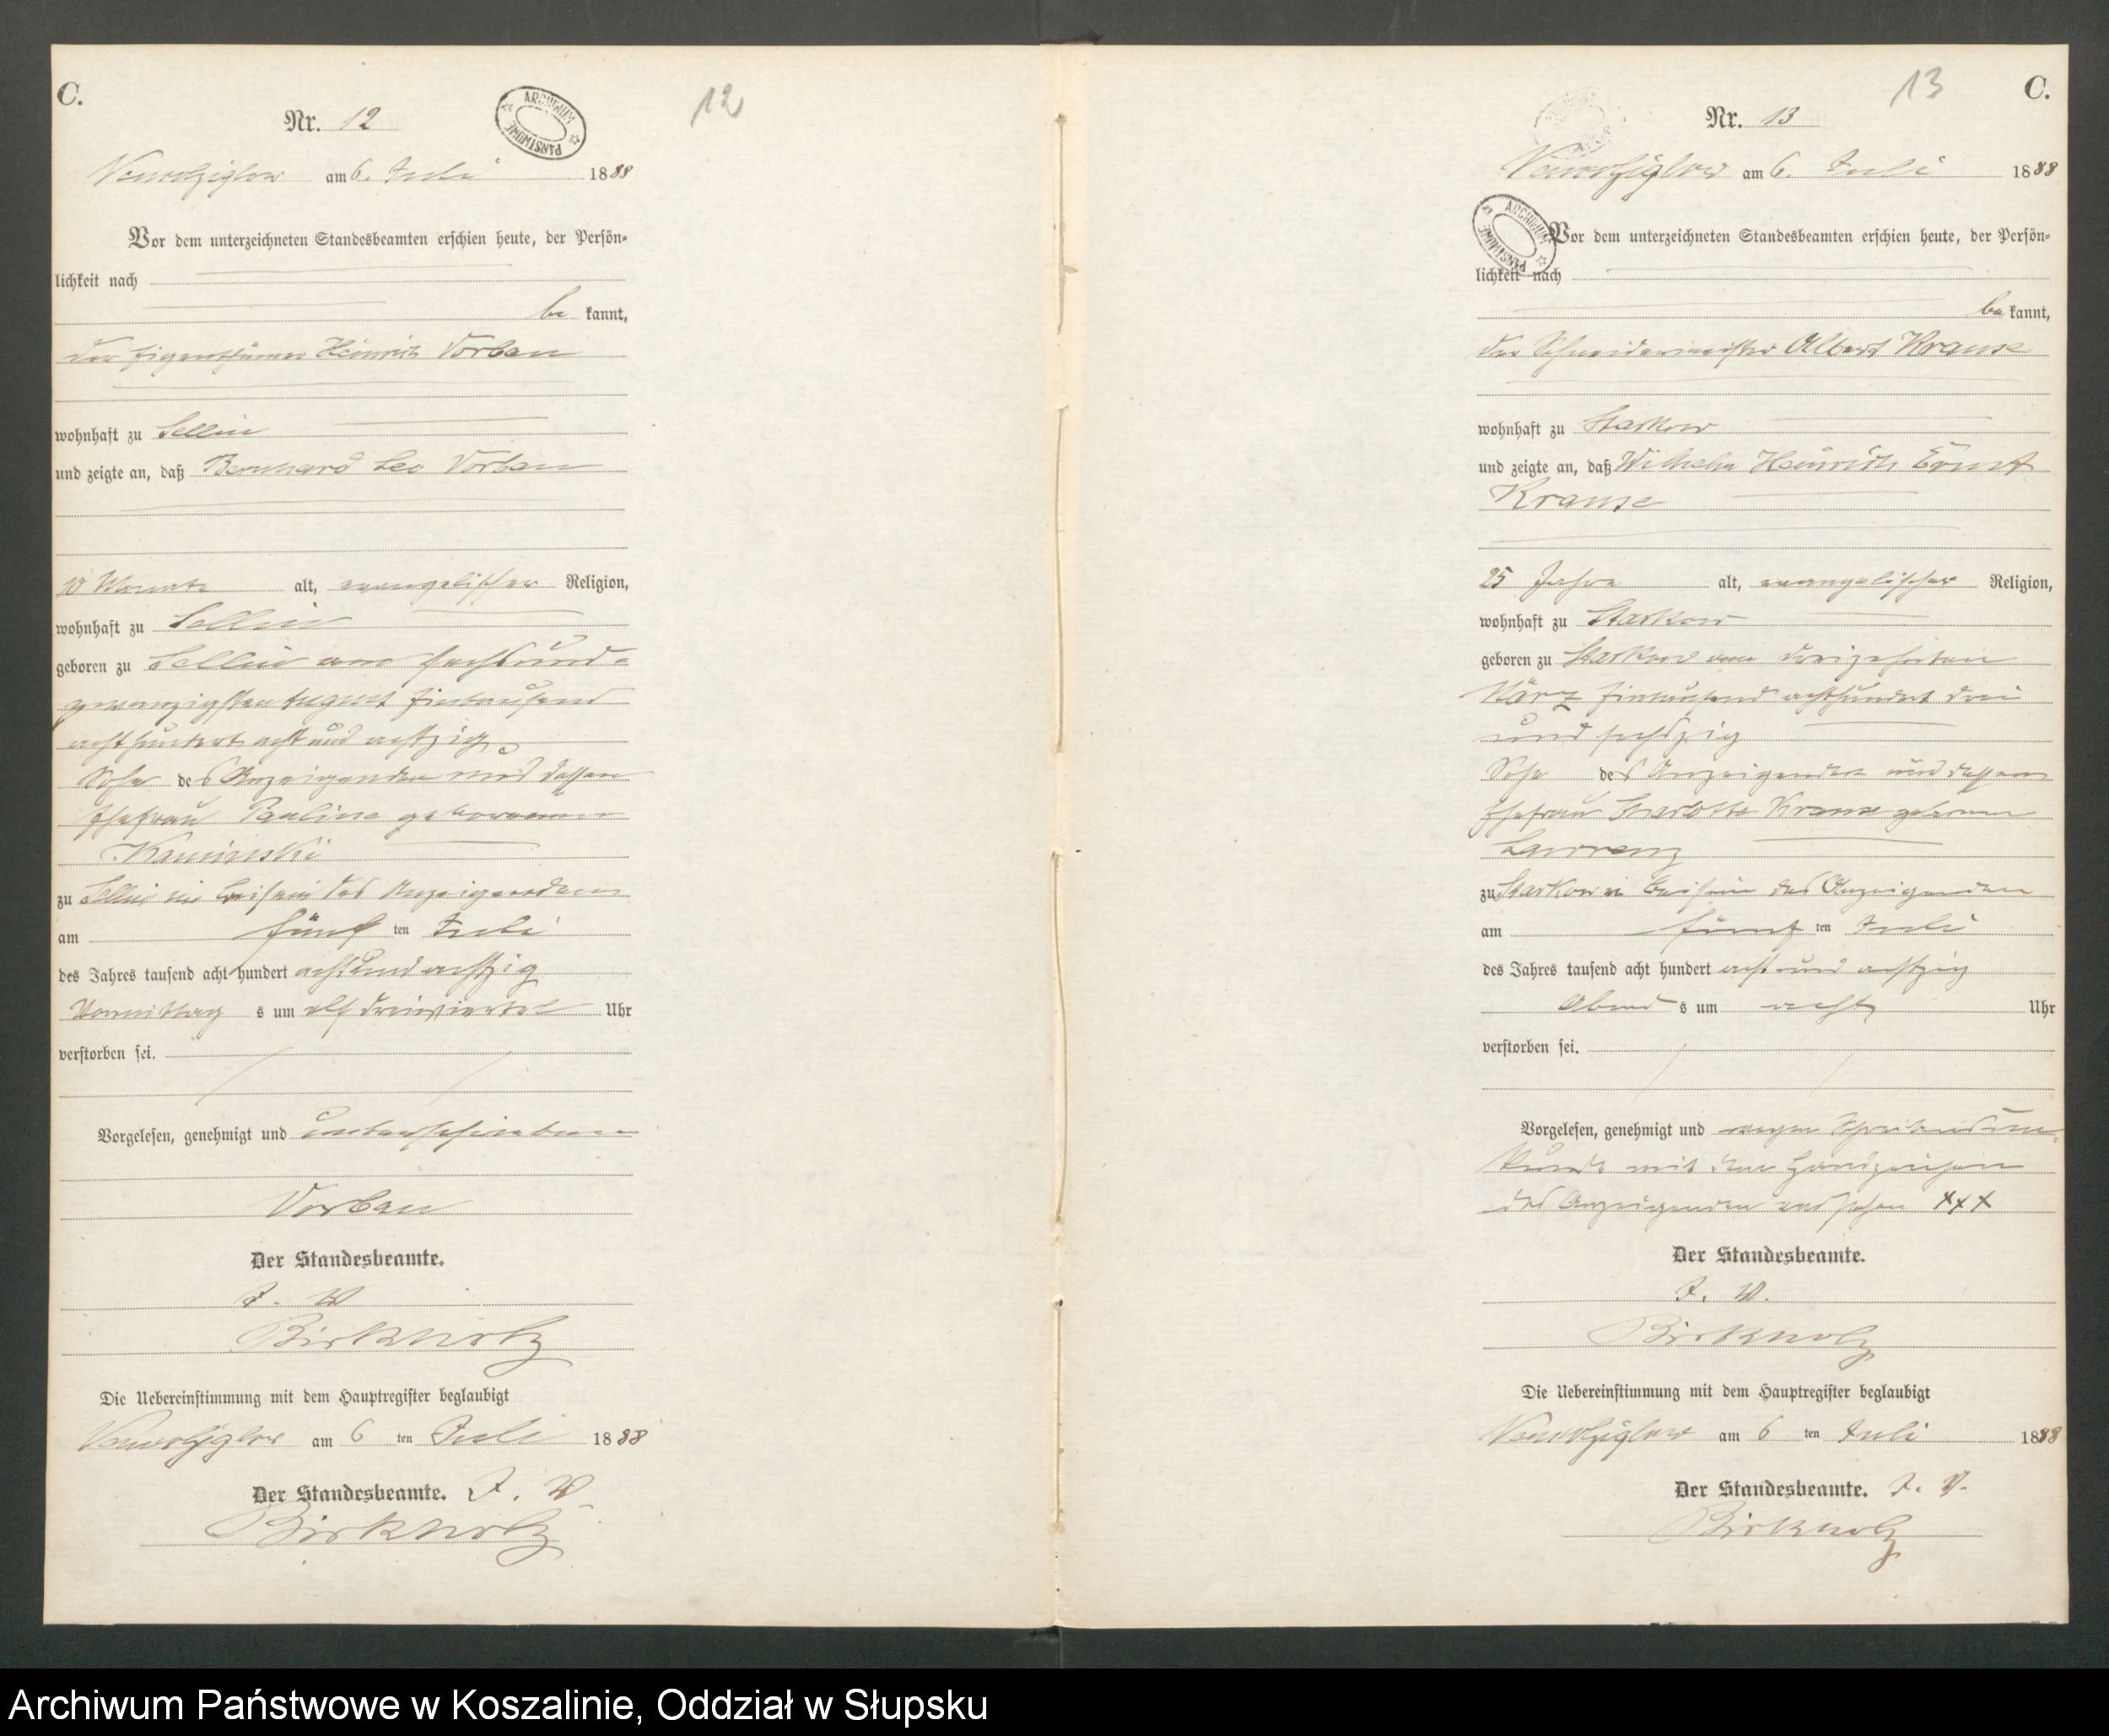 C.
Nr. 12
ARCHIWUM PAŃSTWOWE
12
am 6. Juli 1888
Vor dem unterzeichneten Standesbeamten erschien heute, der Persön-
lichkeit nach
be kannt,
der Eigenthümer Heinrich Vorbau
wohnhaft zu Sellin
und zeigte an, daß Bernhard Leo Vorbau
10 Monate alt, evangelischer Religion,
wohnhaft zu Sellin
geboren zu Sellin am sechsund-
zwanzigsten August Eintausend
achthundert acht und achtzig
Sohn des Anzeigenden und dessen
Ehefrau Pauline geborenen
Kaminski
zu Sellin im Beisein des Anzeigenden
am fünf ten Juli
des Jahres tausend acht hundert acht und achtzig
Vormittag s um elf dreiviertel Uhr
verstorben sei.
Vorgelesen, genehmigt und unterschrieben
Vorbau
Der Standesbeamte.
J. V.
Birkholz
Die Uebereinstimmung mit dem Hauptregister beglaubigt
am 6 ten Juli 1888
Der Standesbeamte. J. V.
Birkholz
13
C.
Nr. 13
am 6. Juli 1888
ARCHIWUM PAŃSTWOWE
Vor dem unterzeichneten Standesbeamten erschien heute, der Persön-
lichkeit nach
be kannt,
der Schneidermeister Albert Krause
wohnhaft zu Starkow
und zeigte an, daß Wilhelm Heinrich Ernst
Krause
25 Jahre alt, evangelischer Religion,
wohnhaft zu Starkow
geboren zu Starkow am dreizehnten
März Eintausend achthundert drei
und sechszig
Sohn des Anzeigenden und dessen
Ehefrau Charlotte Krause geborenen
Lawrenz
zu Starkow in Beisein des Anzeigenden
am fünf ten Juli
des Jahres tausend acht hundert acht und achtzig
Abend s um acht Uhr
verstorben sei.
Vorgelesen, genehmigt und wegen Schreibensun-
kunde mit dem Handzeichen
des Anzeigenden versehen +++
Der Standesbeamte.
J. V.
Birkholz
Die Uebereinstimmung mit dem Hauptregister beglaubigt
am 6 ten Juli 1888
Der Standesbeamte. J. V.
Birkholz
Archiwum Państwowe w Koszalinie, Oddział w Słupsku